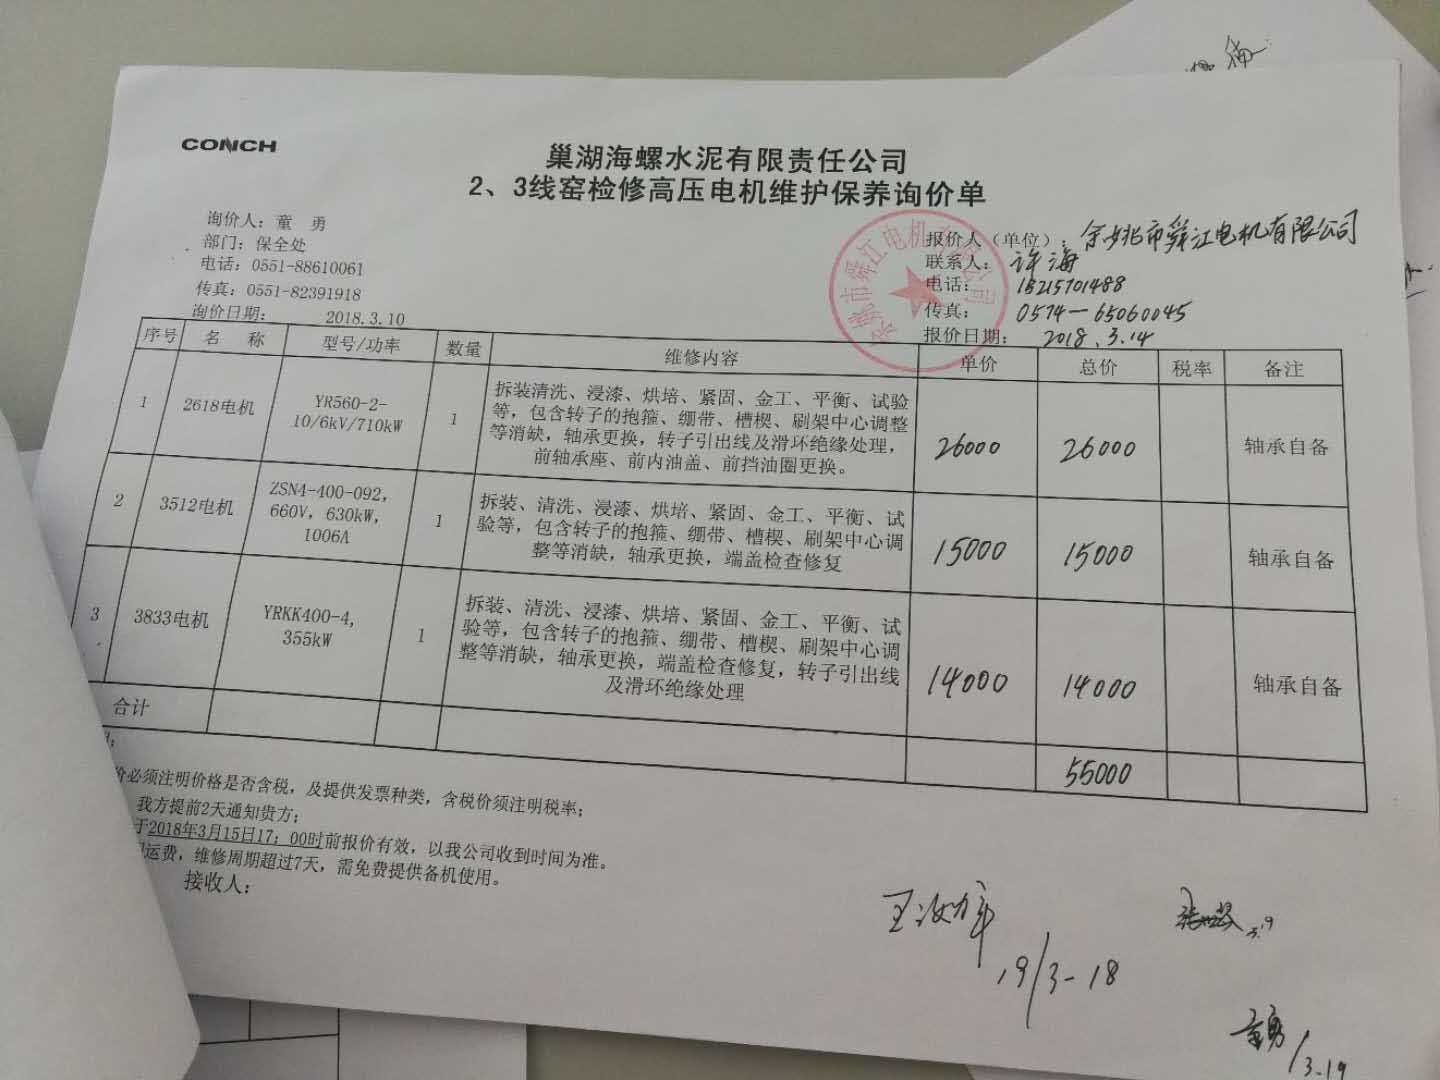 CONCH
巢湖海螺水泥有限责任公司
2、3线窑检修高压电机维护保养询价单
询价人：童 勇
部门：保全处
电话：0551-88610061
传真：0551-82391918
询价日期： 2018.3.10
报价人（单位）：余姚市舜江电机有限公司
联系人：许海
电话：
传真：0574-65060045
报价日期：2018.3.14
余姚市舜江电机有限公司
序号 名 称 型号/功率 数量 维修内容 单价 总价 税率 备注
1 2618电机 YR560-2-
10/6kV/710kW 1 拆装清洗、浸漆、烘培、紧固、金工、平衡、试验
等，包含转子的抱箍、绷带、槽楔、刷架中心调整
等消缺，轴承更换，转子引出线及滑环绝缘处理，
前轴承座、前内油盖、前挡油圈更换。 26000 26000 轴承自备
2 3512电机 ZSN4-400-092，
660V，630kW，
1006A 1 拆装、清洗、浸漆、烘培、紧固、金工、平衡、试
验等，包含转子的抱箍、绷带、槽楔、刷架中心调
整等消缺，轴承更换，端盖检查修复 15000 15000 轴承自备
3 3833电机 YRKK400-4，
355kW 1 拆装、清洗、浸漆、烘培、紧固、金工、平衡、试
验等，包含转子的抱箍、绷带、槽楔、刷架中心调
整等消缺，轴承更换，端盖检查修复，转子引出线
及滑环绝缘处理 14000 14000 轴承自备
合计 55000
价必须注明价格是否含税，及提供发票种类，含税价须注明税率；
我方提前2天通知贵方；
于2018年3月15日17：00时前报价有效，以我公司收到时间为准。
运费，维修周期超过7天，需免费提供备机使用。
接收人：
19/3-18
3.19
童勇
/3.19